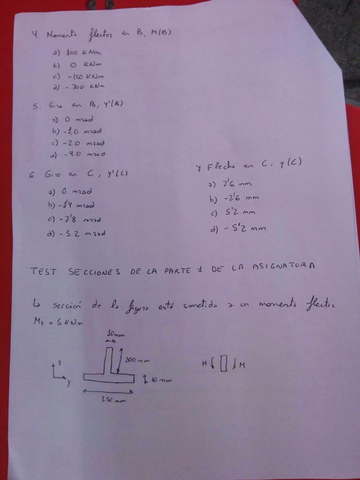 4. Momento flector en B, M(B)
a) 100 KNm
b) 0 KNm
c) -100 KNm
d) -300 KNm
5. Giro en B, y'(B)
a) 0 mrad
b) -1.0 mrad
c) -2.0 mrad
d) -4.0 mrad
6 Giro en C, y'(C)
a) 0 mrad
b) -1'4 mrad
c) -2'8 mrad
d) -5.2 mrad
7 Flecha en C, y(C)
a) 2'6 mm
b) -2'6 mm
c) 5'2 mm
d) -5'2 mm
TEST SECCIONES DE LA PARTE 1 DE LA ASIGNATURA
La sección de la figura está sometida a un momento flector
= 5 KNm
30mm
300 mm
y
10 mm
250 mm
M M